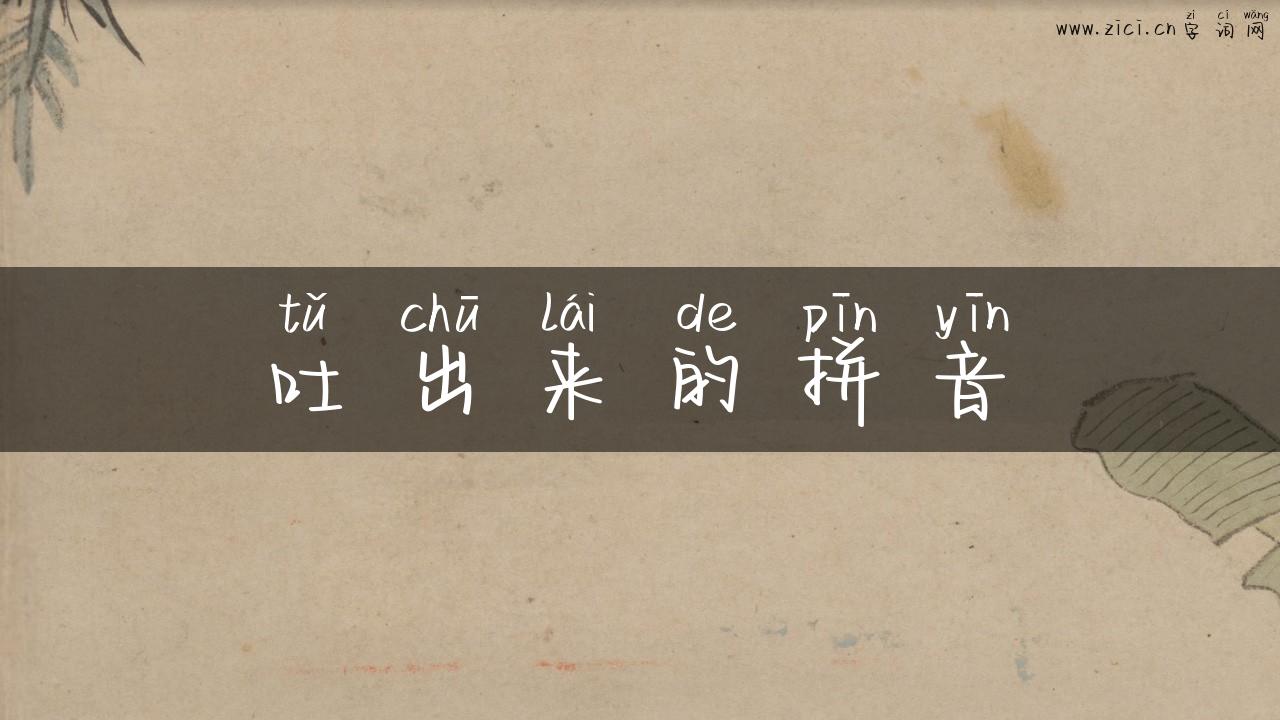 zì cí wǎng
www.zici.cn 字词网
tǔ chū lái de pīn yīn
吐出来的拼音